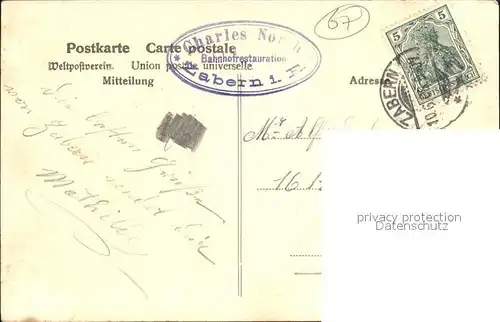 67
Charles North
Bahnhofrestauration
Zabern i. E.
Postkarte Carte postale
Weltpostverein. Union postale universelle.
Mitteilung
Adresse
5 5
ZABERN
Die besten Grüße
von Zabern sendet Dir
Mathilde
Mr
privacy protection
watermark